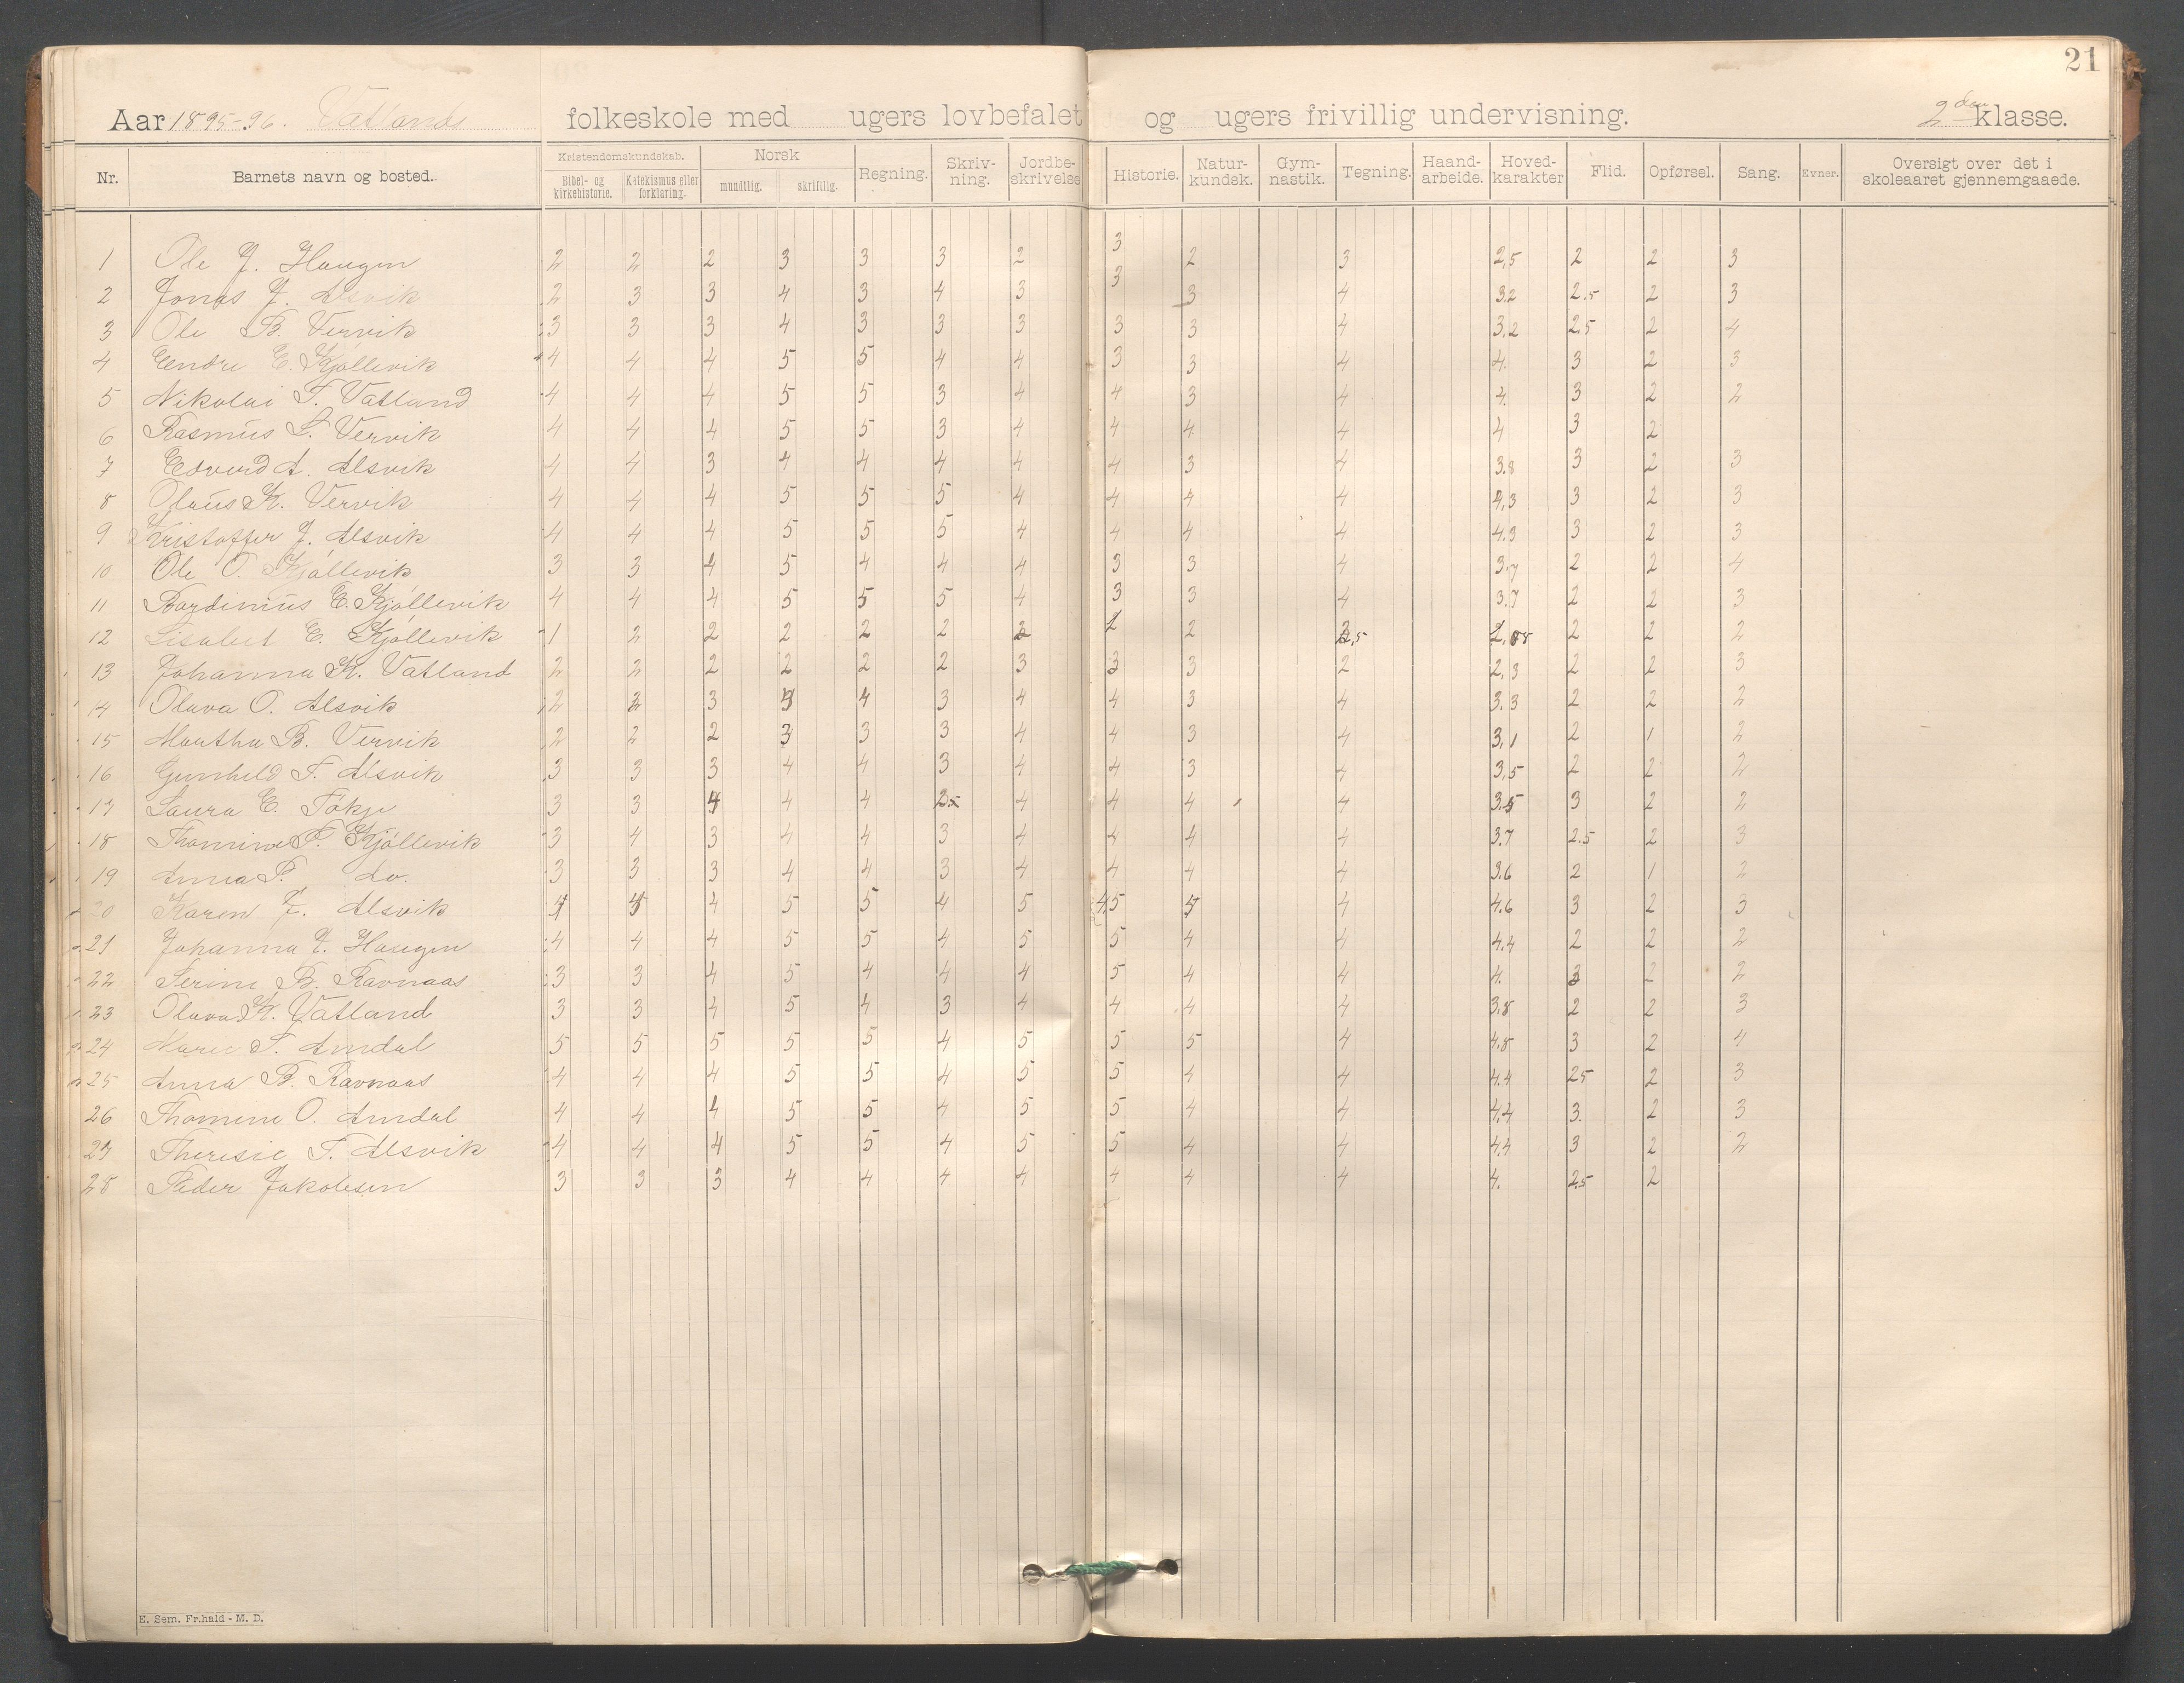 21
Aar 1895-96. Vatlands folkeskole med ugers lovbefalet og ugers frivillig undervisning. 2den klasse.
Nr. Barnets navn og bosted. Kristendomskundskab. Bibel- og kirkehistorie. Katekismus eller forklaring. Norsk mundtlig. skriftlig. Regning. Skriv-ning. Jordbe-skrivelse Historie. Natur-kundsk. Gym-nastik. Tegning. Haand-arbeide. Hoved-karakter Flid. Opførsel. Sang. Evner. Oversigt over det i skoleaaret gjennemgaaede.
1 Ole J. Haugen 2 2 2 3 3 3 2 3 2 3 2,5 2 2 3
2 Jonas J. Alsvik 2 3 3 4 3 4 3 3 3 4 3.2 2.5 2 3
3 Ole B. Vervik 3 3 3 4 3 3 3 3 3 4 3,2 2,5 2 4
4 Endre E. Kjöllevik 4 4 4 5 5 4 4 3 3 4 4. 3 2 3
5 Nikolai T. Vatland 4 4 4 5 5 3 4 4 3 4 4. 3 2 2
6 Rasmus L. Vervik 4 4 4 5 5 3 4 4 4 4 4 3 2
7 Edverd A. Alsvik 4 4 3 4 4 4 4 4 3 4 3.8 3 2 3
8 Olaus K. Vervik 4 4 4 5 5 5 4 4 4 4 4,3 3 2 3
9 Kristoffer J. Alsvik 4 4 4 5 5 5 4 4 4 4 4.3 3 2 3
10 Ole O. Kjöllevik 3 3 4 5 4 4 4 3 3 4 3.7 2 2 4
11 Bardinius E. Kjöllevik 4 4 4 5 5 5 4 3 3 4 3.7 2 2 3
12 Lisabet E. Kjöllevik 1 2 2 2 2 2 2 2 2 2 2
13 Johanna K. Vatland 2 2 2 2 2 2 3 3 3 2 2,3 2 2 3
14 Olava O. Alsvik 2 2 3 3 4 3 4 4 3 4 3.3 2 2 2
15 Martha B. Vervik 2 2 2 3 3 3 4 4 3 4 3,1 2 1 2
16 Gunhild T. Alsvik 3 3 3 4 4 3 4 4 3 4 3,5 2 2 2
17 Laura E. Tökje 3 3 4 4 4 2.5 4 4 4 4 3.5 3 2 2
18 Thomine T. Kjöllevik 3 4 3 4 4 3 4 4 4 4 3.7 2.5 2 3
19 Anna T. do. 3 3 3 4 4 3 4 4 4 4 3.6 2 1 2
20 Karen J. Alsvik 4 5 5 4 5 4,5 4 4.6 3 2 3
21 Johanna J. Haugen 4 4 4 5 5 4 5 5 4 4 4.4 2 2 2
22 Serine B. Ravnaas 3 3 4 5 4 4 4 5 4 4 4. 3 2 2
23 Olava K. Vatland 3 3 4 5 4 3 4 4 4 4 3,8 2 2 3
24 Marie T. Amdal 5 5 5 5 5 4 5 5 5 4 4.8 3 2 4
25 Anna B. Ravnaas 4 4 4 5 5 4 5 5 4 4 4.4 25 2 3
26 Thomine O. Amdal 4 4 4 5 5 4 5 5 4 4 4,4 3. 2 3
27 Theresie T. Alsvik 4 4 4 5 5 4 5 5 4 4 4.4 3 2 2
28 Peder Jakobsen 3 3 3 4 4 4 4 4 4 4 4. 2.5 2
E. Sem. Fr.hald - M. D.